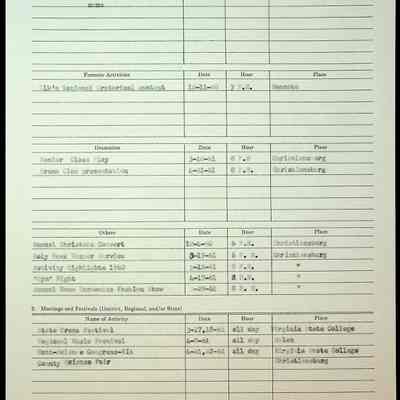 Forensic Activities Date Hour Place
Elk's Regional Oratorical contest 12-11-60 7 P.M. Roanoke
Dramatics Date Hour Place
Senior Class Play 3-10-61 8 P.M Christiansburg
Drama Club presentation 4-21-61 8 P.M. Christiansburg
Others Date Hour Place
Annual Christmas Concert P.M. Christiansburg
Holy Week Vesper Service P. M. Christiansburg
Activity Highlights 1960 P.M. "
"Open" Night P.M. "
Annual Home Economics Fashion Show P. M. "
2. Meetings and Festivals (District, Regional, and/or State)
Name of Activity Date Hour Place
State Drama Festival 3-17,18-61 all day Virginia State College
Regional Music Festival all day
all day Virginia State College
County Science Fair Christiansburg